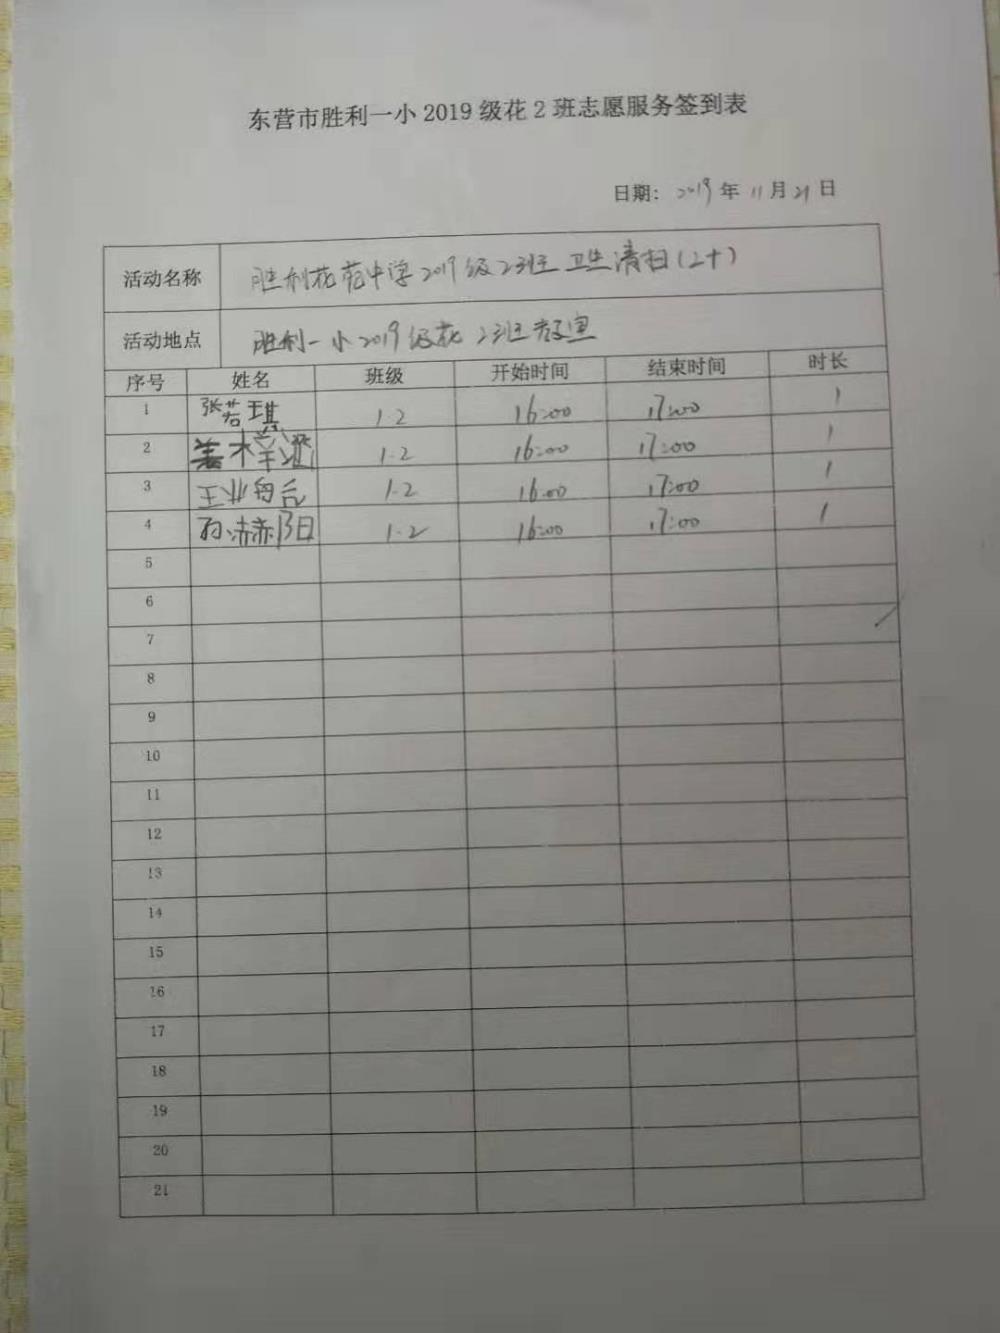 东营市胜利一小 2019 级花 2 班志愿服务签到表
日期: 2019 年 11 月 21 日
活动名称 胜利花苑中学2019级2班卫生清扫(二十)
活动地点 胜利一小2019级花2班教室
序号 姓名 班级 开始时间 结束时间 时长
1 张若琪 1.2 16:00 17:00 1
2 1.2 16:00 17:00 1
3 王业 1.2 16:00 17:00 1
4 孙赫阳 1.2 16:00 17:00 1
5
6
7
8
9
10
11
12
13
14
15
16
17
18
19
20
21